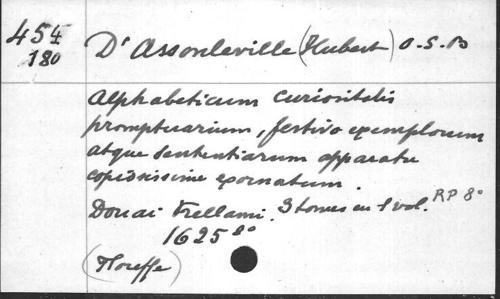 454
180
D'Assonleville (Hubert) O.S.B
Alphabeticum Curiositatis
promptuarium, festivo exemplorum
atque sententiarum apparatu
copiosissime exornatum.
Douai Trellami. 3 tomes en 1 vol. RP 8°
1625 8°
(Floreffe)